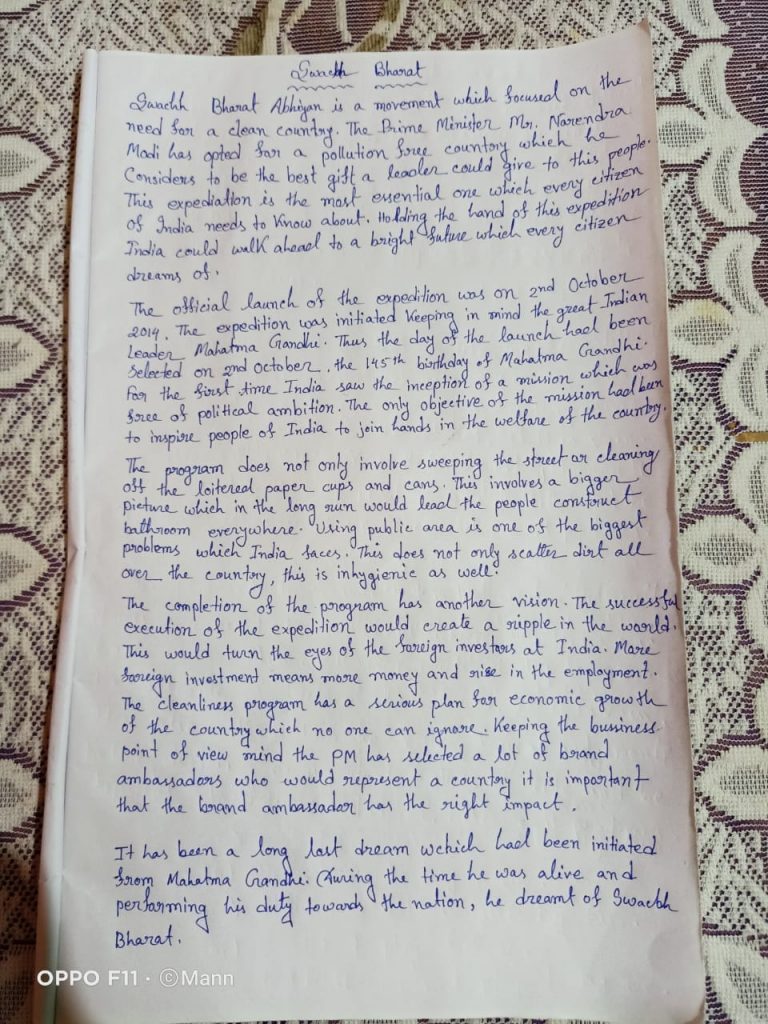 Swachh Bharat
Swachh Bharat Abhiyan is a movement which focused on the
need for a clean country. The Prime Minister Mr. Narendra
Modi has opted for a pollution free country which he
Considers to be the best gift a leader could give to this people.
This expediation is the most essential one which every citizen
of India needs to Know about. Holding the hand of this expedition
India could walk ahead to a bright future which every citizen
dreams of.
The official launch of the expedition was on 2nd October
2014. The expedition was initiated Keeping in mind the great Indian
Leader Mahatma Gandhi. Thus the day of the launch had been
Selected on 2nd October, the 145th birthday of Mahatma Gandhi.
For the first time India saw the inception of a mission which was
free of political ambition. The only objective of the mission had been
to inspire people of India to join hands in the welfare of the country.
The program does not only involve sweeping the street or cleaning
off the loitered paper cups and cans. This involves a bigger
picture which in the long run would lead the people construct
bathroom everywhere. Using public area is one of the biggest
problems which India faces. This does not only scatter dirt all
over the country, this is inhygienic as well.
The completion of the program has another vision. The successful
execution of the expedition would create a ripple in the world.
This would turn the eyes of the foreign investors at India. More
foreign investment means more money and rise in the employment.
The cleanliness program has a serious plan for economic growth
of the country which no one can ignore. Keeping the business
point of view mind the PM has selected a lot of brand
ambassadors who would represent a country it is important
that the brand ambassador has the right impact.
It has been a long lost dream wchich had been initiated
from Mahatma Gandhi. During the time he was alive and
performing his duty towards the nation, he dreamt of Swachh
Bharat.
OPPO F11 · ©Mann